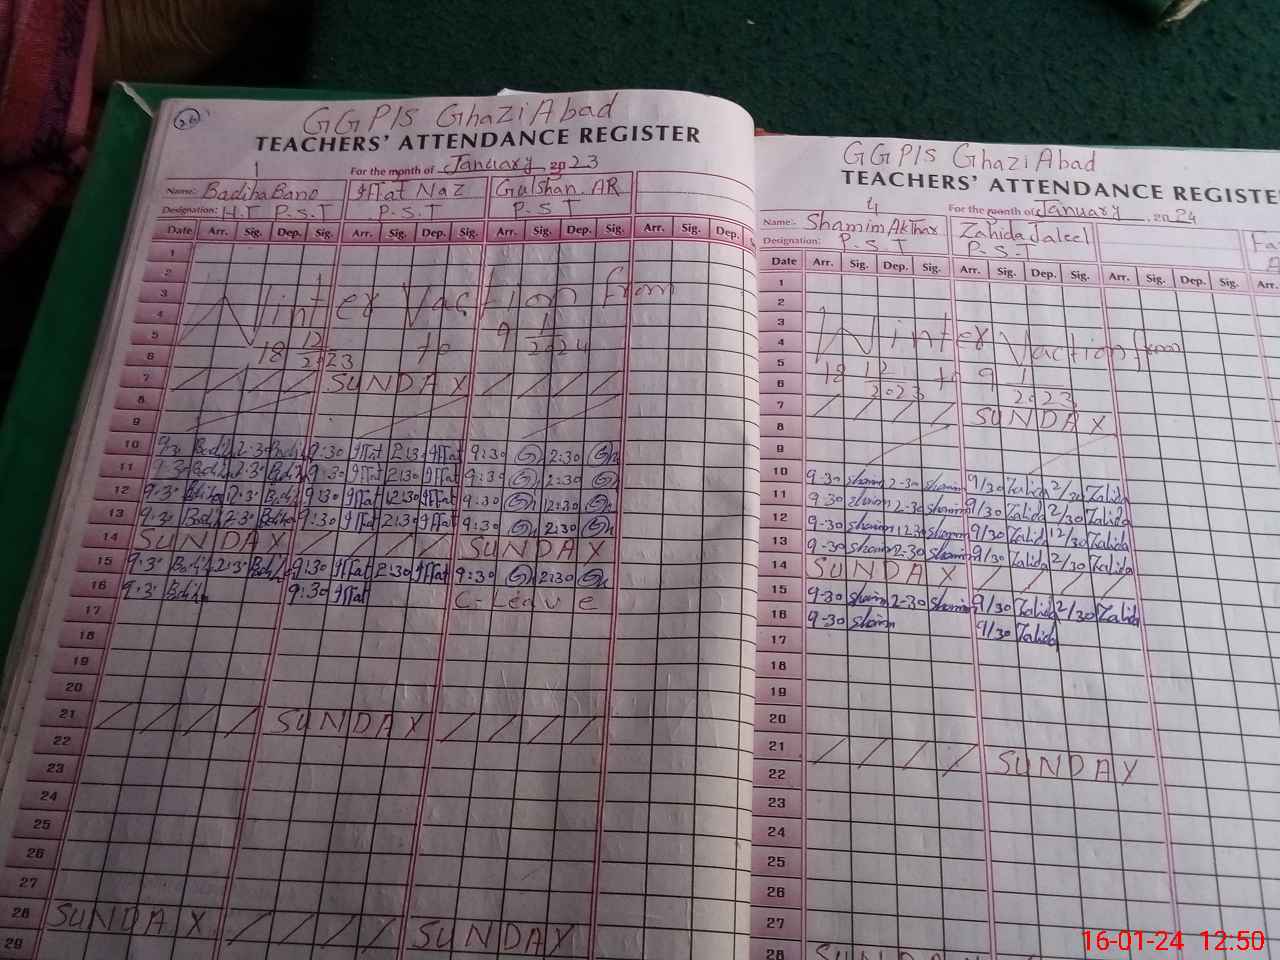 26
GGP/S GhaziAbad
TEACHERS' ATTENDANCE REGISTER
1
For the month of January 2023
Name: BadihaBano Iffat Naz Gulshan.AR
Designation: H.T P.S.T P.S.T P.S T
Date Arr. Sig. Dep. Sig. Arr. Sig. Dep. Sig. Arr. Sig. Dep. Sig. Arr. Sig. Dep.
1
2
3 Winter Vaction from
4
5 18 12/2023 to 9 1/2024
6
7 SUNDAY
8
9
10 9:30 2:30 9:30 Iffat 2:30 Iffat 9:30 2:30
11 9:30 2:30 9:30 Iffat 2:30 Iffat 9:30 2:30
12 9:30 12:30 9:30 Iffat 12:30 Iffat 9:30 12:30
13 9:30 2:30 9:30 Iffat 2:30 Iffat 9:30 2:30
14 SUNDAY SUNDAY
15 9:30 2:30 9:30 Iffat 2:30 Iffat 9:30 2:30
16 9:30 9:30 Iffat C-Leave
17
18
19
20
21 SUNDAY
22
23
24
25
26
27
28 SUNDAY SUNDAY
29
GGP/S GhaziAbad
TEACHERS' ATTENDANCE REGISTE
4
For the month of January 2024
Name:- ShamimAkthar Zahida Jaleel
Designation: P.S.T P.S.T
Date Arr. Sig. Dep. Sig. Arr. Sig. Dep. Sig. Arr. Sig. Dep. Sig. Arr.
1
2
3
4 Winter Vaction from
5
6 18 12/2023 to 9 1/2023
7 SUNDAY
8
9
10 9-30 Shamim 2-30 Shamim 9/30 Zahida 2/30 Zahida
11 9-30 Shamim 2-30 Shamim 9/30 Zahida 2/30 Zahida
12 9-30 Shamim 12-30 Shamim 9/30 Zahida 12/30 Zahida
13 9-30 Shamim 2-30 Shamim 9/30 Zahida 2/30 Zahida
14 SUNDAY
15 9-30 Shamim 2-30 Shamim 9/30 Zahida 2/30 Zahida
16 9-30 Shamim 9/30 Zahida
17
18
19
20
21 SUNDAY
22
23
24
25
26
27
28
16-01-24 12:50